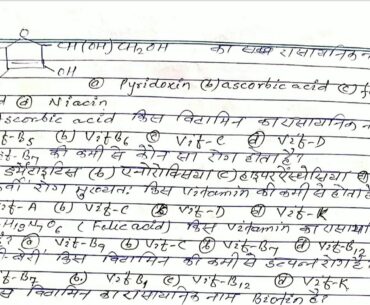 O
CH(OH)CH2OH का सही रासायनिक
OH
ⓐ Pyridoxin (b) ascorbic acid (c)
ⓓ Niacin
ascorbic acid किस विटामिन का रासायनिक
Vit-B5 (b) Vit B6 ⓒ Vit-C ⓓ Vit-D
Vit-B7 की कमी से कौन सा रोग होता है?
डर्मेटाइटिस (b) एनोरोक्सिया (c)
रोग मुख्यतः किस Vitamin की कमी से होता है
Vit-A (b) Vit-C ⓒ Vit-D ⓓ Vit-K
H19N7O6 (Folic acid) किस Vitamin का
है? ⓐ Vit-B9 (b) Vit-C ⓑ Vit-B7 ⓓ Vit-B12
किस विटामिन की कमी से उत्पन्न रोग है?
Vit-B7 (b) Vit B1 ⓒ Vit-B12 ⓓ Vit-K
किस विटामिन का रासायनिक नाम Biotin है?